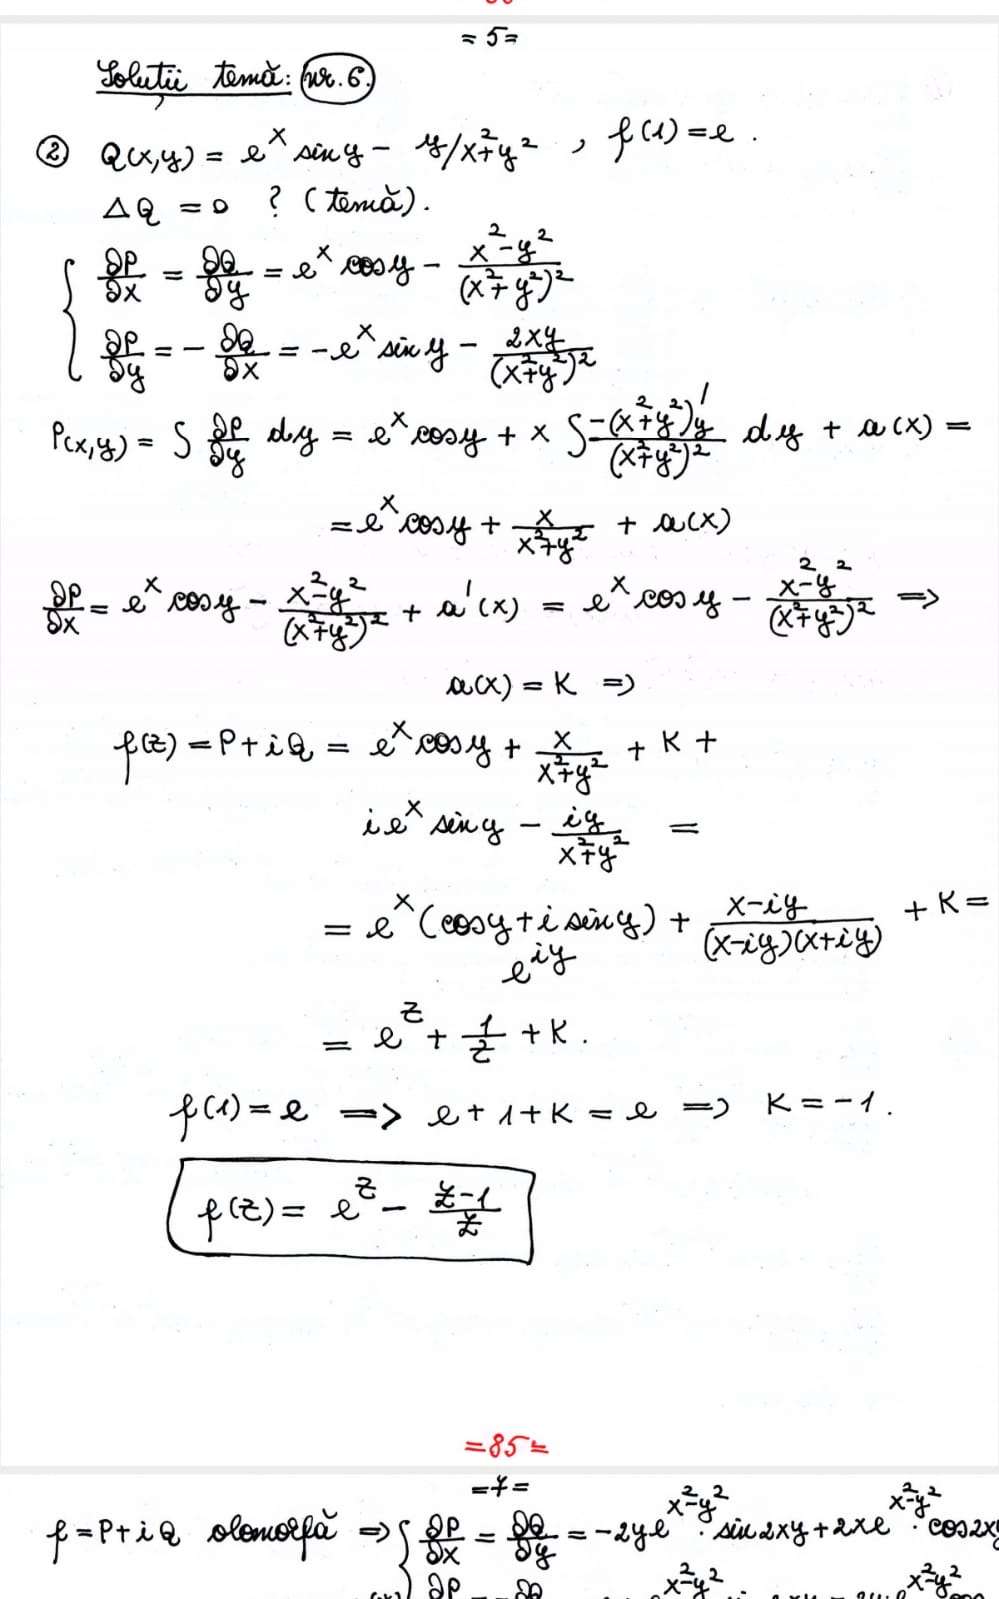 = 5 =
Soluții temă: nr. 6.
② Q(x,y) = e^x sin y - y/x²+y² , f(1) = e .
ΔQ = 0 ? (temă).
{ ∂P/∂x = ∂Q/∂y = e^x cos y - (x²-y²)/(x²+y²)²
∂P/∂y = - ∂Q/∂x = -e^x sin y - 2xy/(x²+y²)²
P(x,y) = ∫ ∂P/∂y dy = e^x cos y + x ∫ -(x²+y²)'y/(x²+y²)² dy + a(x) =
= e^x cos y + x/(x²+y²) + a(x)
∂P/∂x = e^x cos y - (x²-y²)/(x²+y²)² + a'(x) = e^x cos y - (x²-y²)/(x²+y²)² =>
a(x) = K =>
f(z) = P + iQ = e^x cos y + x/(x²+y²) + K +
i e^x sin y - iy/(x²+y²) =
= e^x (cos y + i sin y) + (x-iy)/((x-iy)(x+iy)) + K =
e^iy
= e^z + 1/z + K .
f(1) = e => e + 1 + K = e => K = -1 .
f(z) = e^z - (z-1)/z
= 85 =
= 7 =
f = P + iQ olomorfă => { ∂P/∂x = ∂Q/∂y = -2y e^(x²-y²) · sin 2xy + 2x e^(x²-y²) · cos 2xy